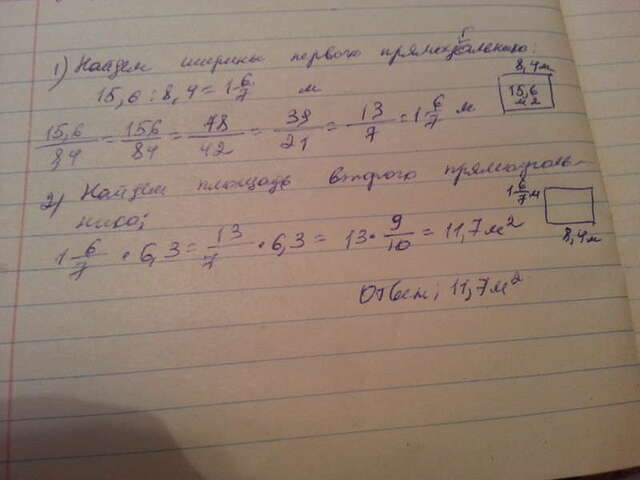 1) Найдем ширины первого прямоугольника:
8,4м
15,6 : 8,4 = 1 6/7 м
15,6 м2
15,6/8,4 = 156/84 = 78/42 = 39/21 = 13/7 = 1 6/7 м
2) Найдем площадь второго прямоуголь-
ника;
1 6/7 м
8,4м
1 6/7 · 6,3 = 13/7 · 6,3 = 13 · 9/10 = 11,7 м²
Ответ; 11,7 м²